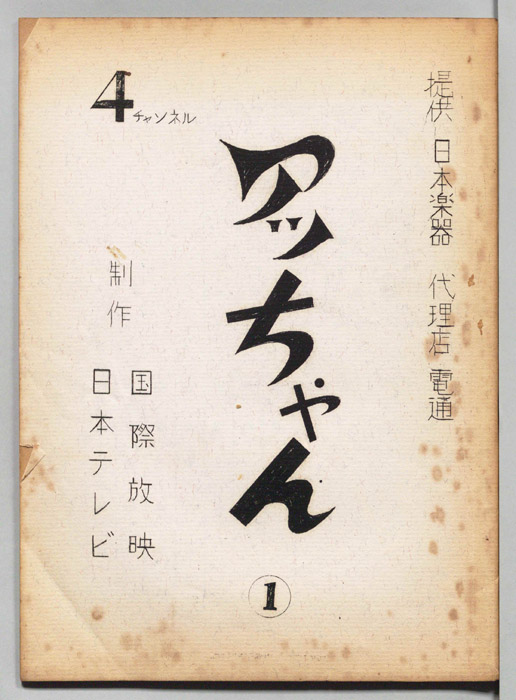 提供 日本楽器 代理店 電通
4チャンネル
アッちゃん
①
制作
国際放映
日本テレビ